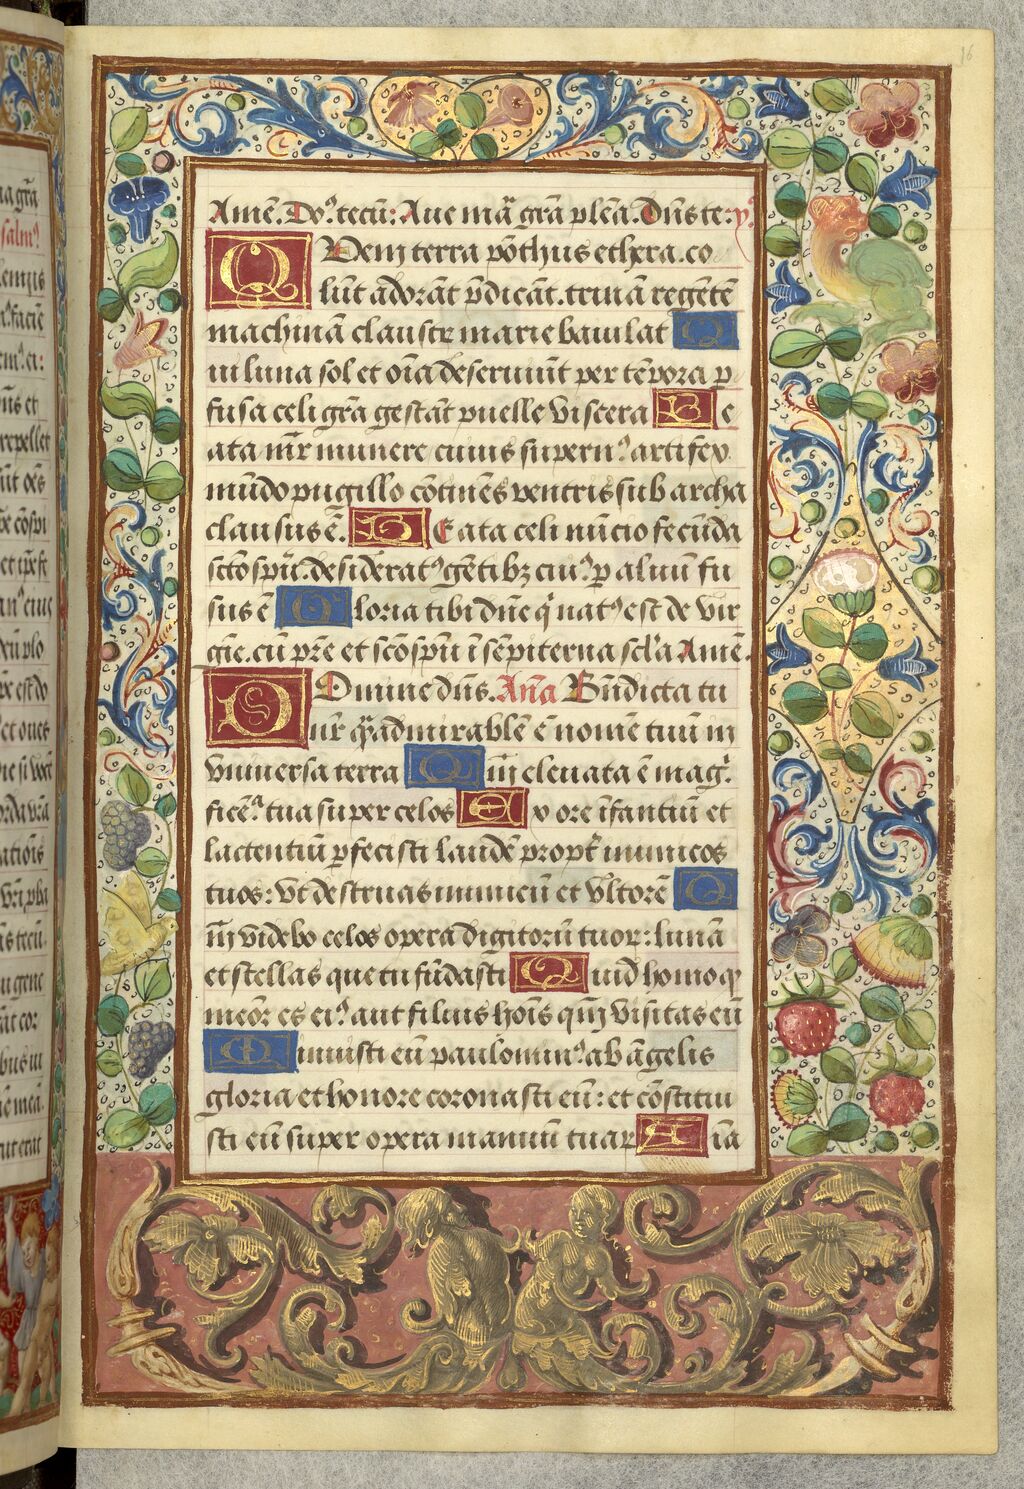 16
Amē. Dō⁹. tecū: Aue mā grā plēa. Dn̄s te: y⁹
QVem terra pōthus ethera. co
lūt adorāt p̄dicāt. trinā regētē
machinā claustr marie baiulat C
ui luna sol et oīa deseruiūt per tēpora p̲
fusa celi grā gestāt puelle viscera Be
ata mr̄ munere cuius supern⁹ artifex
mūdo pugillo cōtinēs ventris sub archa
clausus ē. BEata celi nūcio fecūda
scto spū. desiderat⁹ gētibz cui⁹ p̲ aluū fu
sus ē Gloria tibi dn̄e q̄ nat⁹ est de vir
gīe. cū pr̄e et scō spū ī sēpiterna scl̄a Amē.
DOmine dn̄s. Ana Bn̄dicta tu
nr̄ q̄ admirabłe ē nomē tuū in
vniuersa terra Qm̄ eleuata ē maḡ.
ficē⁹ tua super celos Ex ore īfantiū et
lactentiū p̲fecisti laudē propt̄ inimicos
tuos: vt destruas inimicū et vltorē Q
m̄ videbo celos opera digitorū tuor: lunā
et stellas que tu fūdasti Quid homo q̄
meōr es ei⁹ aut filius hoīs qm̄ visitas eū
Minuisti eū paulomin⁹ ab āgelis
gloria et honore coronasti eū: et cōstitui
sti eū super opera manuū tuar Oīa